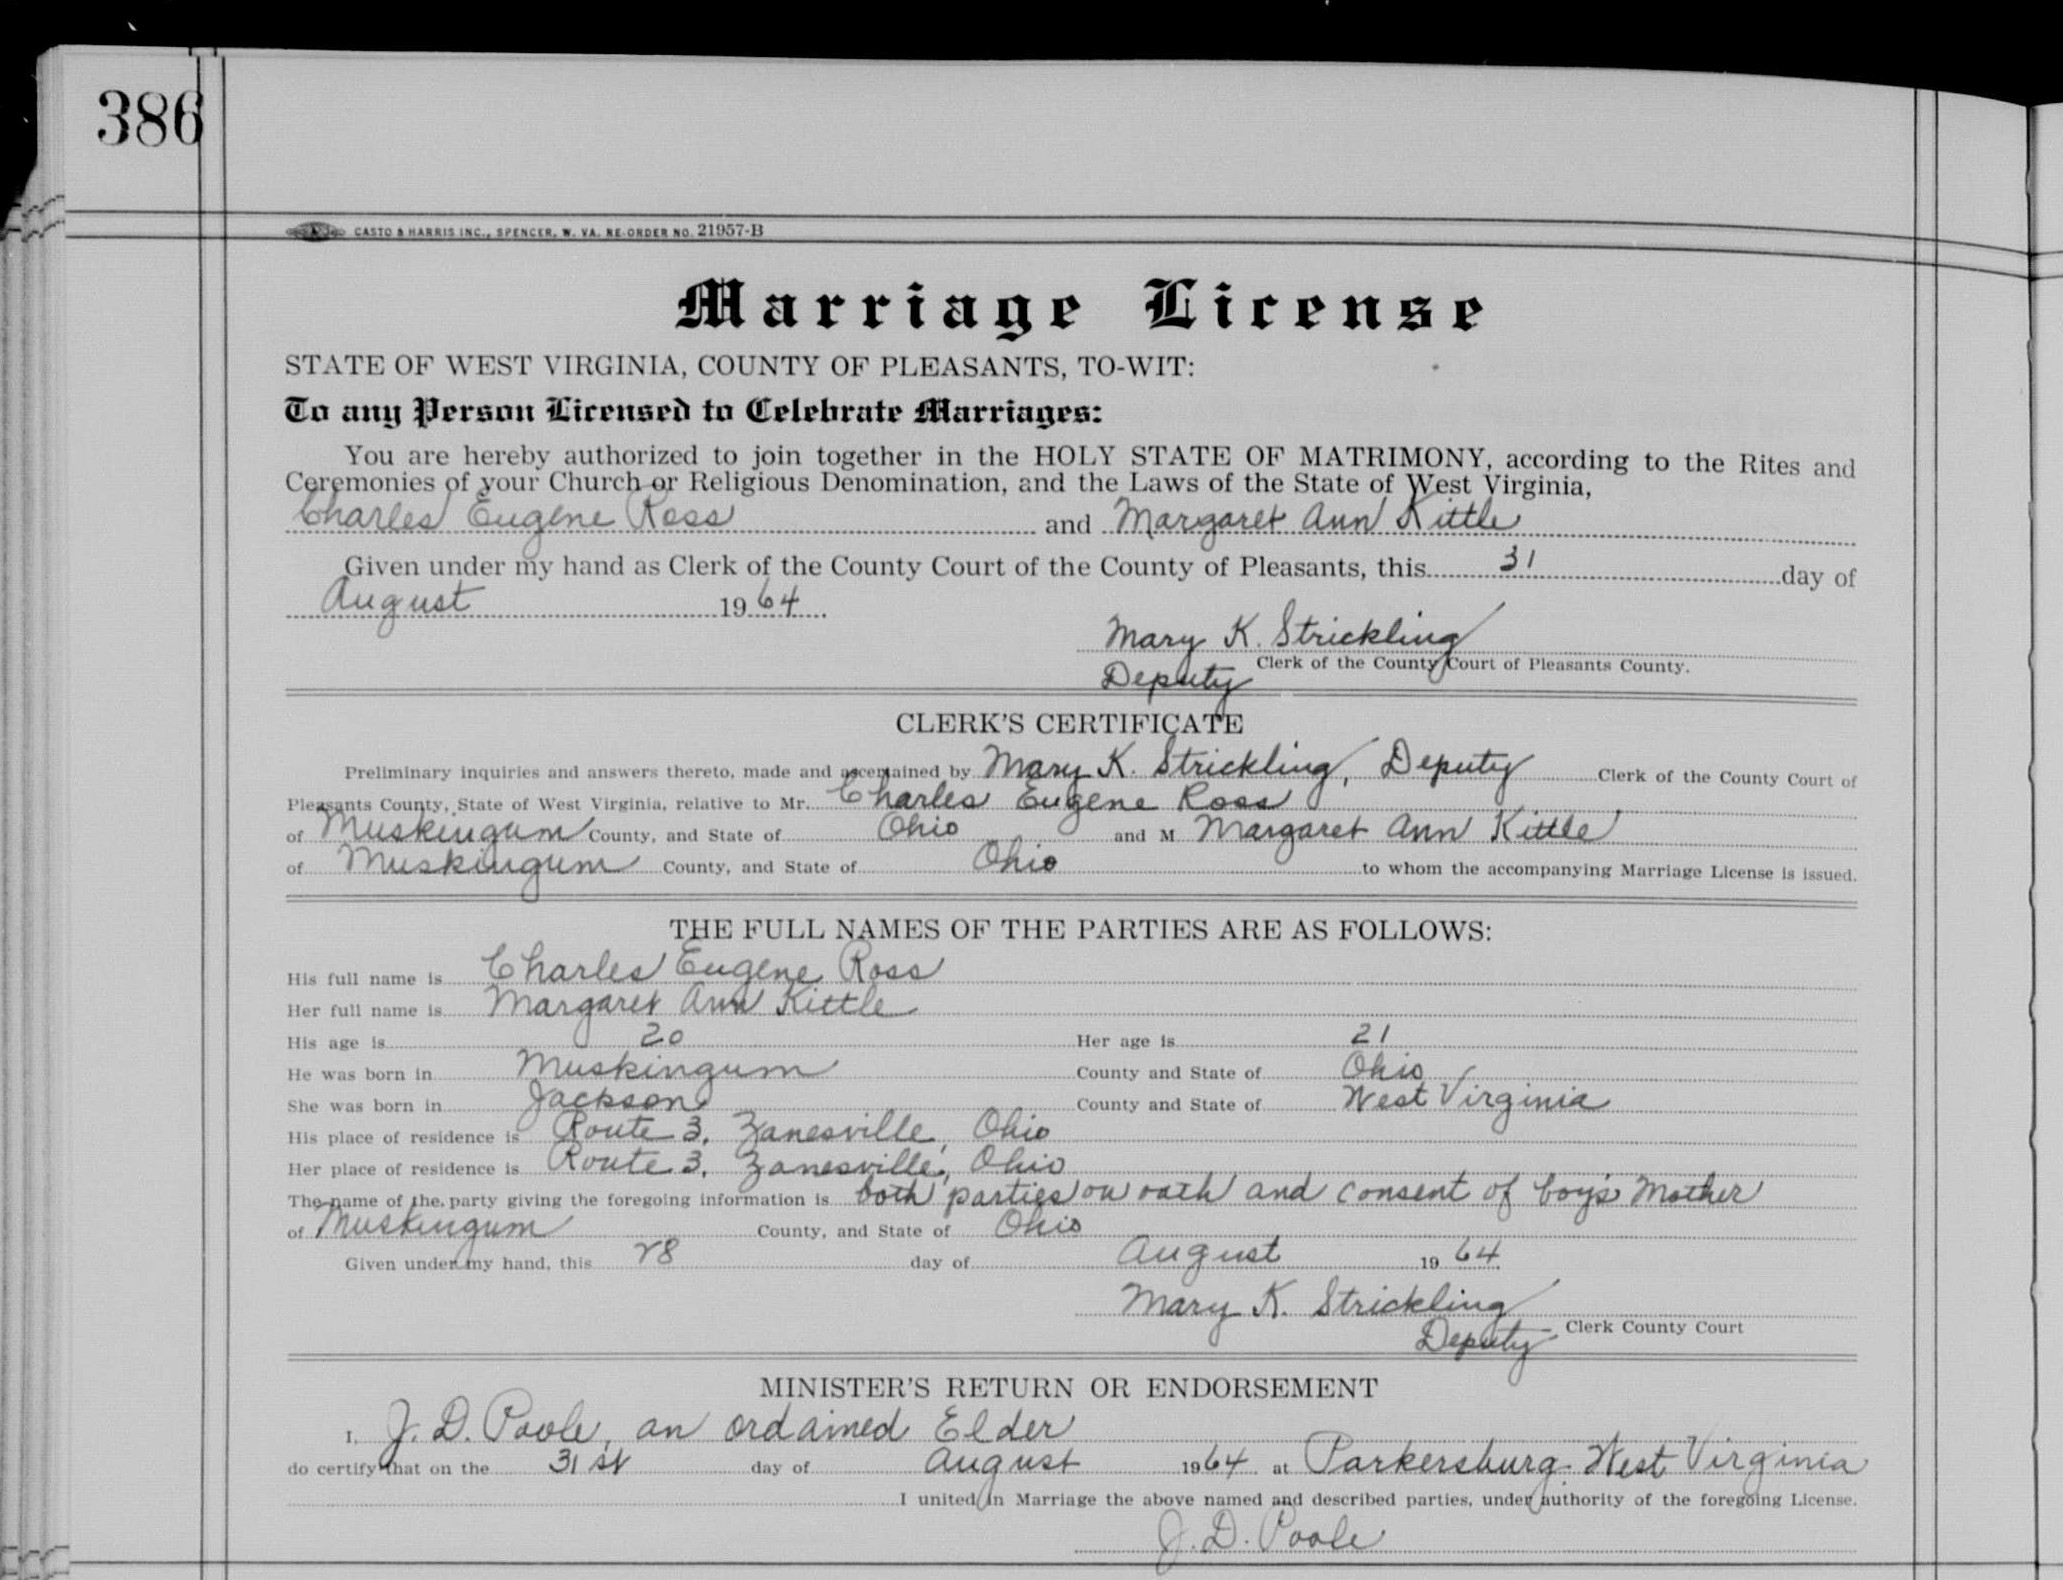 386
CASTO & HARRIS INC., SPENCER, W. VA. RE-ORDER NO. 21957-B
Marriage License
STATE OF WEST VIRGINIA, COUNTY OF PLEASANTS, TO-WIT:
To any Person Licensed to Celebrate Marriages:
You are hereby authorized to join together in the HOLY STATE OF MATRIMONY, according to the Rites and
Ceremonies of your Church or Religious Denomination, and the Laws of the State of West Virginia,
Charles Eugene Ross and Margaret Ann Kittle
Given under my hand as Clerk of the County Court of the County of Pleasants, this 31 day of
August 1964
Mary K. Strickling
Deputy Clerk of the County Court of Pleasants County.
CLERK'S CERTIFICATE
Preliminary inquiries and answers thereto, made and ascertained by Mary K. Strickling, Deputy Clerk of the County Court of
Pleasants County, State of West Virginia, relative to Mr. Charles Eugene Ross
of Muskingum County, and State of Ohio and M Margaret Ann Kittle
of Muskingum County, and State of Ohio to whom the accompanying Marriage License is issued.
THE FULL NAMES OF THE PARTIES ARE AS FOLLOWS:
His full name is Charles Eugene Ross
Her full name is Margaret Ann Kittle
His age is 20 Her age is 21
He was born in Muskingum County and State of Ohio
She was born in Jackson County and State of West Virginia
His place of residence is Route 3, Zanesville, Ohio
Her place of residence is Route 3, Zanesville, Ohio
The name of the party giving the foregoing information is both parties on oath and consent of boy's Mother
of Muskingum County, and State of Ohio
Given under my hand, this 28 day of August 1964
Mary K. Strickling
Deputy Clerk County Court
MINISTER'S RETURN OR ENDORSEMENT
I, J. D. Poole, an ordained Elder
do certify that on the 31st day of August 1964 at Parkersburg West Virginia
I united in Marriage the above named and described parties, under authority of the foregoing License.
J. D. Poole